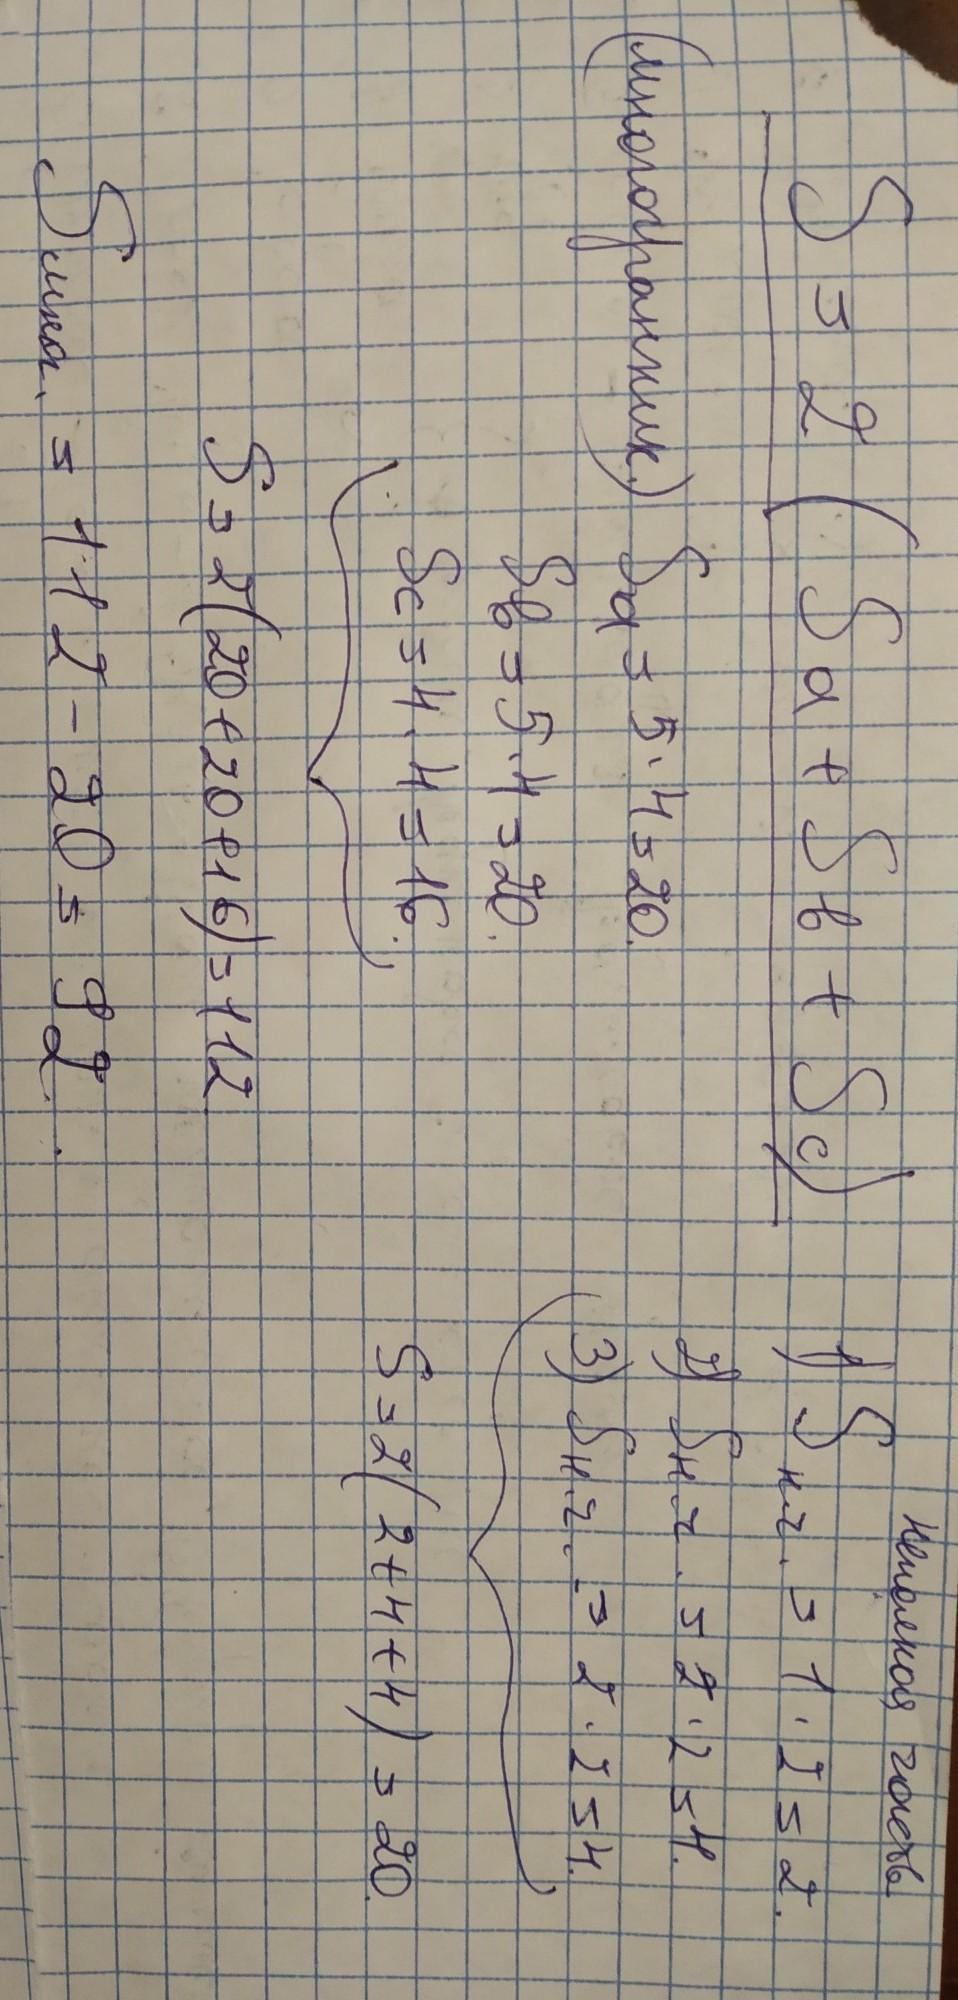 S = 2 (Sa + Sb + Sc)
(многогранник) Sa = 5 · 4 = 20.
Sb = 5 · 4 = 20.
Sc = 4 · 4 = 16.
S = 2(20 + 20 + 16) = 112
Sмног. = 112 - 20 = 92.
Неполная часть
1) Sн.ч. = 1 · 2 = 2.
2) Sн.ч. = 2 · 2 = 4.
3) Sн.ч. = 2 · 2 = 4.
S = 2(2 + 4 + 4) = 20